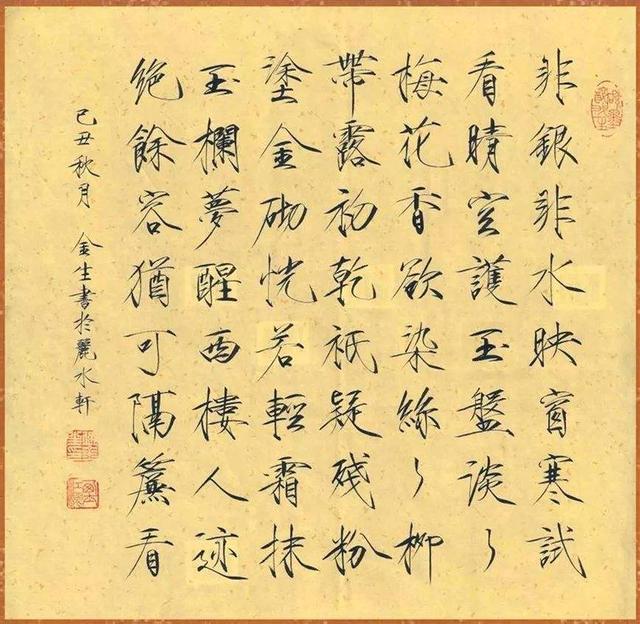 非銀非水映窗寒試
看晴空護玉盤淡〻
梅花香欲染絲〻柳
帶露初乾祇疑殘粉
塗金砌恍若輕霜抹
玉欄夢醒西樓人迹
絕餘容猶可隔簾看
己丑秋月 金生書於麗水軒